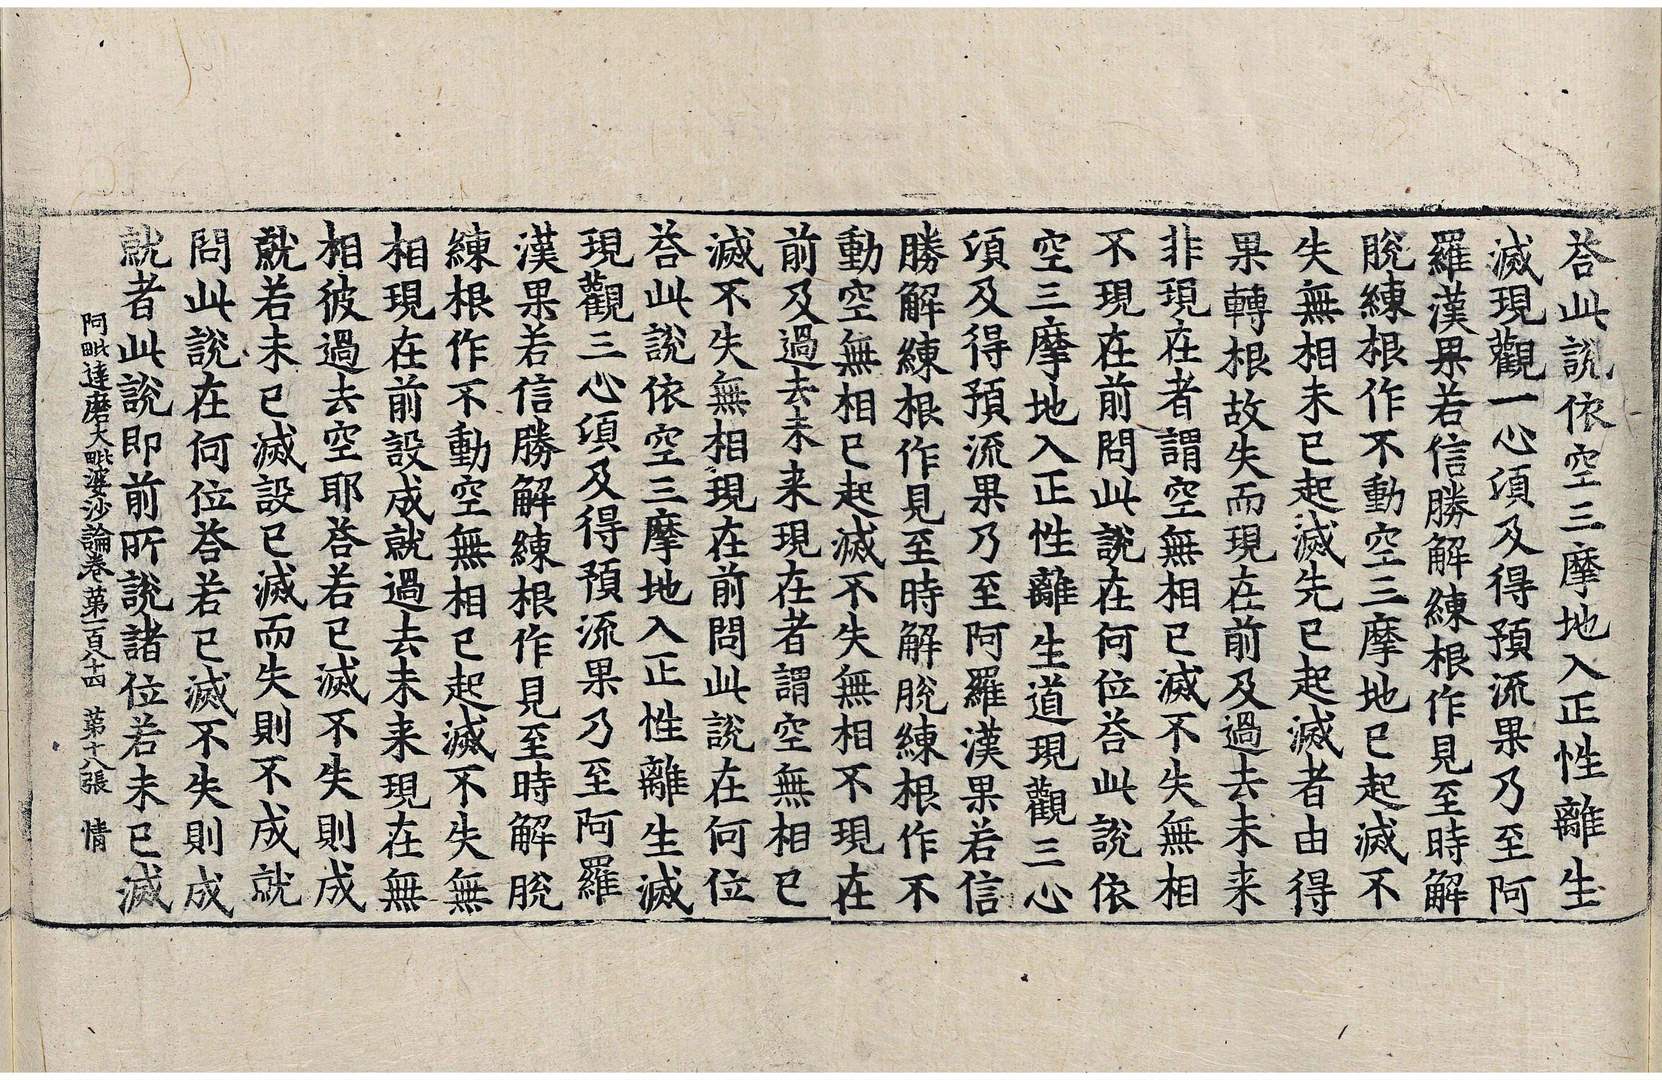 荅此說依空三摩地入正性離生
滅現觀一心須及得預流果乃至阿
羅漢果若信勝解練根作見至時解
脫練根作不動空三摩地已起滅不
失無相未已起滅先已起滅者由得
果轉根故失而現在前及過去未来
非現在者謂空無相已滅不失無相
不現在前問此說在何位荅此說依
空三摩地入正性離生道現觀三心
須及得預流果乃至阿羅漢果若信
勝解練根作見至時解脫練根作不
動空無相已起滅不失無相不現在
前及過去未来現在者謂空無相已
滅不失無相現在前問此說在何位
荅此說依空三摩地入正性離生滅
現觀三心須及得預流果乃至阿羅
漢果若信勝解練根作見至時解脫
練根作不動空無相已起滅不失無
相現在前設成就過去未来現在無
相彼過去空耶荅若已滅不失則成
就若未已滅設已滅而失則不成就
問此說在何位荅若已滅不失則成
就者此說即前所說諸位若未已滅
阿毗達磨大毗婆沙論卷第一百八十四 第十八張 情